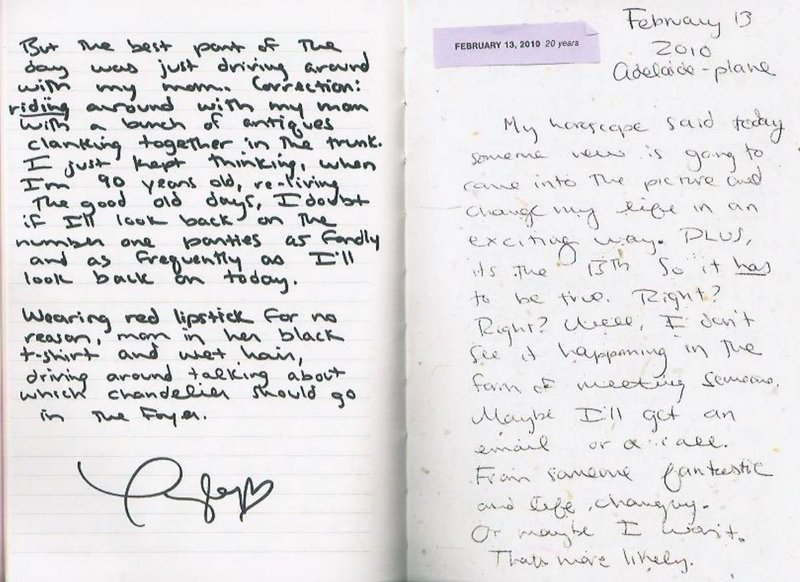 But the best part of the
day was just driving around
with my mom. Correction:
riding around with my mom
with a bunch of antiques
clanking together in the trunk.
I just kept thinking, when
I'm 90 years old, re-living
the good old days, I doubt
if I'll look back on the
number one parties as fondly
and as frequently as I'll
look back on today.
Wearing red lipstick for no
reason, mom in her black
t-shirt and wet hair,
driving around talking about
which chandelier should go
in the foyer.
FEBRUARY 13, 2010 20 years
February 13
2010
Adelaide-plane
My horoscope said today
someone new is going to
come into the picture and
change my life in an
exciting way. PLUS,
its the 13th so it has
to be true. Right?
Right? Well, I don't
see it happening in the
form of meeting someone.
Maybe I'll get an
email or a call.
From someone fantastic
and life changing.
Or maybe I won't.
Thats more likely.